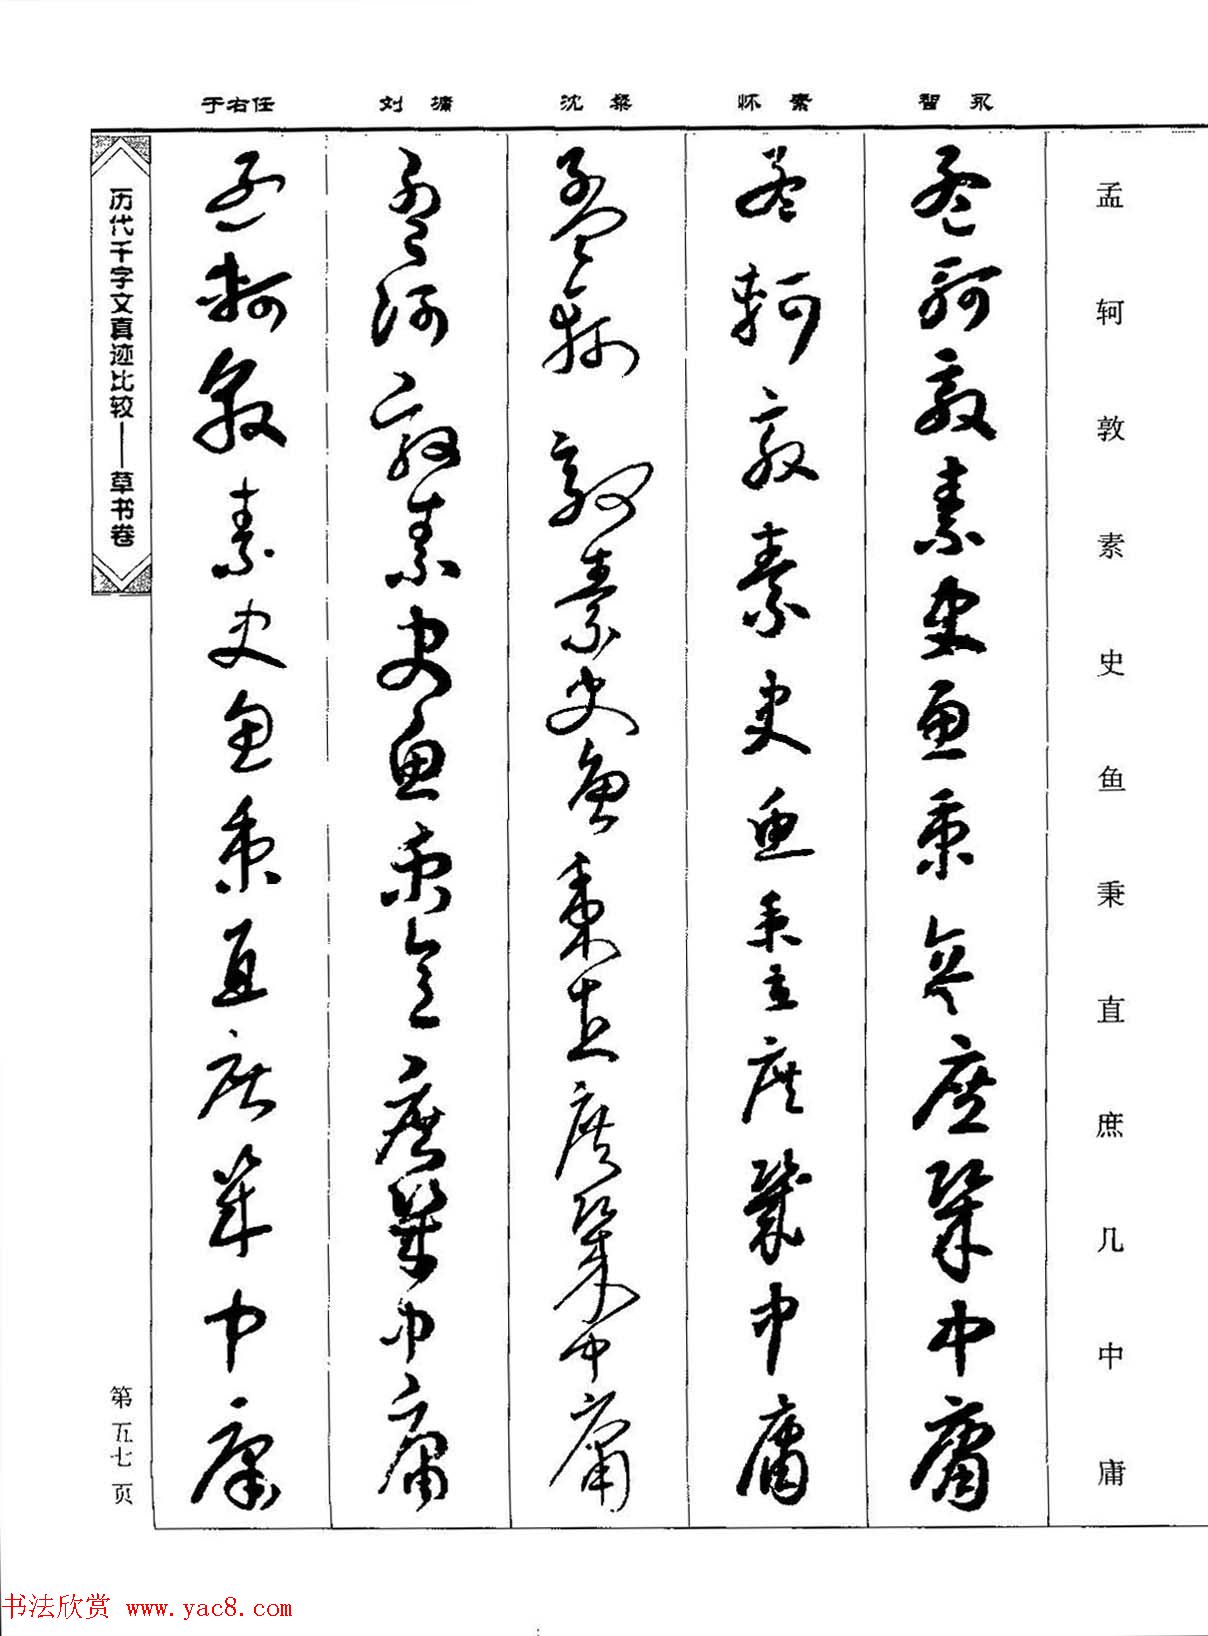 孟轲敦素史鱼秉直庶几中庸
智永
孟軻敦素史魚秉直庶幾中庸
怀素
孟軻敦素史魚秉直庶幾中庸
沈粲
孟軻敦素史魚秉直庶幾中庸
刘墉
孟軻敦素史魚秉直庶幾中庸
于右任
孟軻敦素史魚秉直庶幾中庸
历代千字文真迹比较——草书卷
第五七页
书法欣赏 www.yac8.com